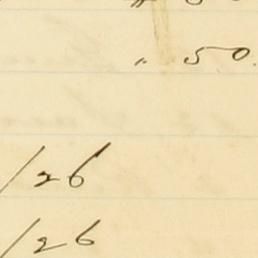 " 50.
/26
/26